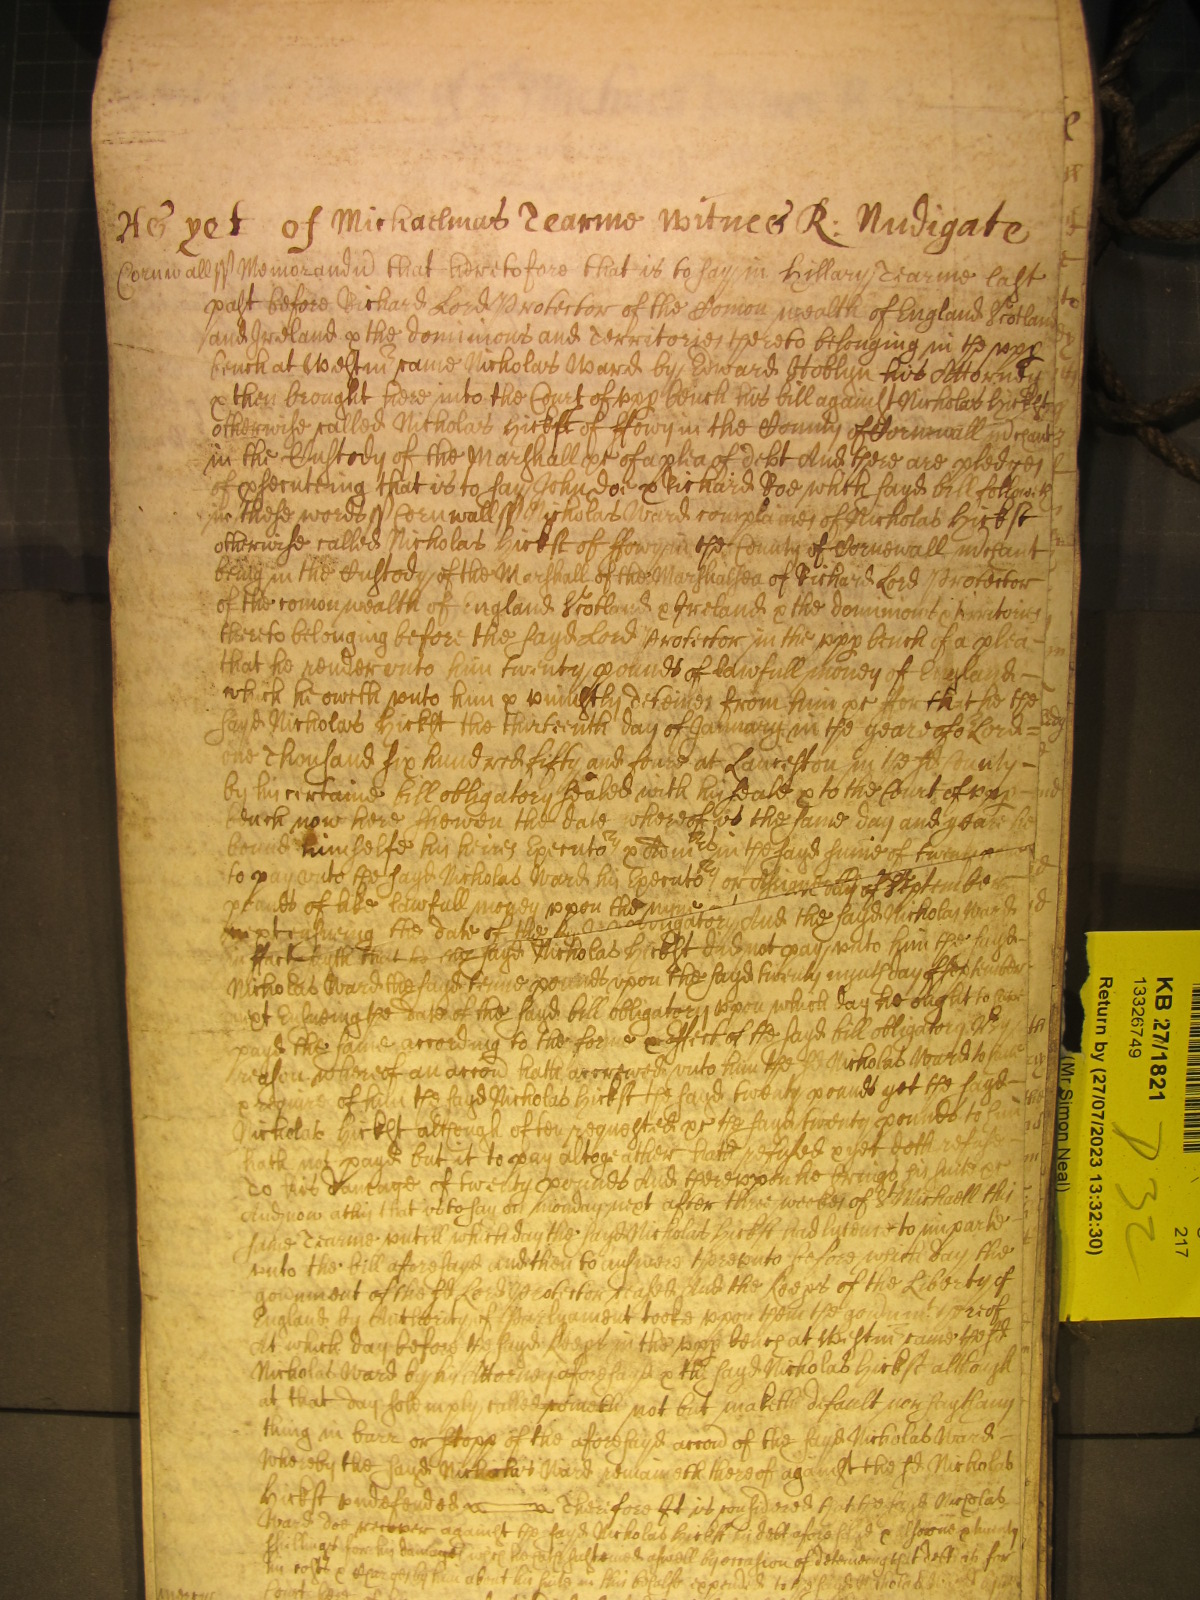 As yet of Michaelmas Tearme Witnes R: Nudigate
Cornwall ss Memorand that heretofore that is to say in Hillary Tearme last
past before Richard Lord Protector of the Comon wealth of England Scotland
and Ireland & the dominions and Territories thereto belonging in the upp
bench at Westm came Nicholas Ward by Edward Hoblyn his Attorney
& then brought here into the Court of upp bench his bill against Nicholas Hickst
otherwise called Nicholas Hickst of ffowy in the County of Cornwall m'chant
in the Custody of the Marshall &c of a plea of debt And there are pledges
of p'secuteing that is to say John Doe & Richard Roe which sayd bill followeth
in these words ss Cornwall ss Nicholas Ward complaines of Nicholas Hickst
otherwise called Nicholas Hickst of ffowy in the County of Cornewall m'chant
being in the Custody of the Marshall of the Marshalsea of Richard Lord Protector
of the comon wealth of England Scotland & Ireland & the dominions & territories
thereto belonging before the sayd Lord Protector in the upp bench of a plea
that he render unto him twenty pounds of lawfull money of England
which he oweth unto him & uniustly deteines from him &c ffor that he the
sayd Nicholas Hickst the thirteenth day of January in the yeare of o Lord
one Thousand six hundred fifty and foure at Lanceston in the sd County
by his certaine bill obligatory sealed with his seale & to the Court of upp
bench now here shewen the date whereof is the same day and yeare he
bound himselfe his heires Executo & Adm in the sayd sume of twenty
to pay unto the sayd Nicholas Ward his Executo or day of September
pounds of like lawfull money upon the nyne
next ensueing the date of the obligatory And the sayd Nicholas Ward
in fact saith that he the sayd Nicholas Hickst did not pay unto him the sayd
Nicholas Ward the sayd tenne pounds upon the sayd twenty nynth day of September
next Ensueing the date of the sayd bill obligatory upon which day he ought to have
payd the same according to the forme & effect of the sayd bill obligatory By
reason whereof an accon hath accrewed unto him the sd Nicholas Ward to have
& require of him the sayd Nicholas Hickst the sayd twenty pounds yet the sayd
Nicholas Hickst although often requested &c the sayd twenty pounds to him
hath not payd but it to pay altogeather hath refused & yet doth refuse
To his damage of twenty pounds And thereupon he brings his suite &c
And now at this that is to say on Monday next after three weekes of St Michaell this
same Tearme untill which day the sayd Nicholas Hickst had licence to imparle
unto the bill aforesayd and then to answere thereunto before which day the
gov'nment of the sd Lord Protector ceased And the Keep's of the Liberty of
England by Authority of Parlyament tooke upon them the gov'nm't thereof
At which day before the sayd Keep's in the upp bench at Westm came the sd
Nicholas Ward by his Attorney aforesayd & the sayd Nicholas Hickst although
at that day solempnly called cometh not but maketh default nor sayth any
thing in barr or stopp of the aforesayd accon of the sayd Nicholas Ward
Whereby the sayd Nicholas Ward remaineth thereof against the sd Nicholas
Hickst undefended Therefore It is considered that the sayd Nicholas
Ward doe recover against the sayd Nicholas Hickst his debt aforesayd & alsoe
shillings for his damages which he hath susteined aswell by occasion of deteineing that debt as for
his costs & charges by him about his suite in this behalfe expended to the sayd Nicholas Ward
KB 27/1821
13326749
217
Return by (27/07/2023 13:32:30)
(Mr Simon Neal)
D 32